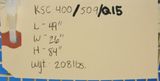 KSC 400/509/Q15
L - 49"
W - 26"
H - 84"
Wgt. 208lbs.